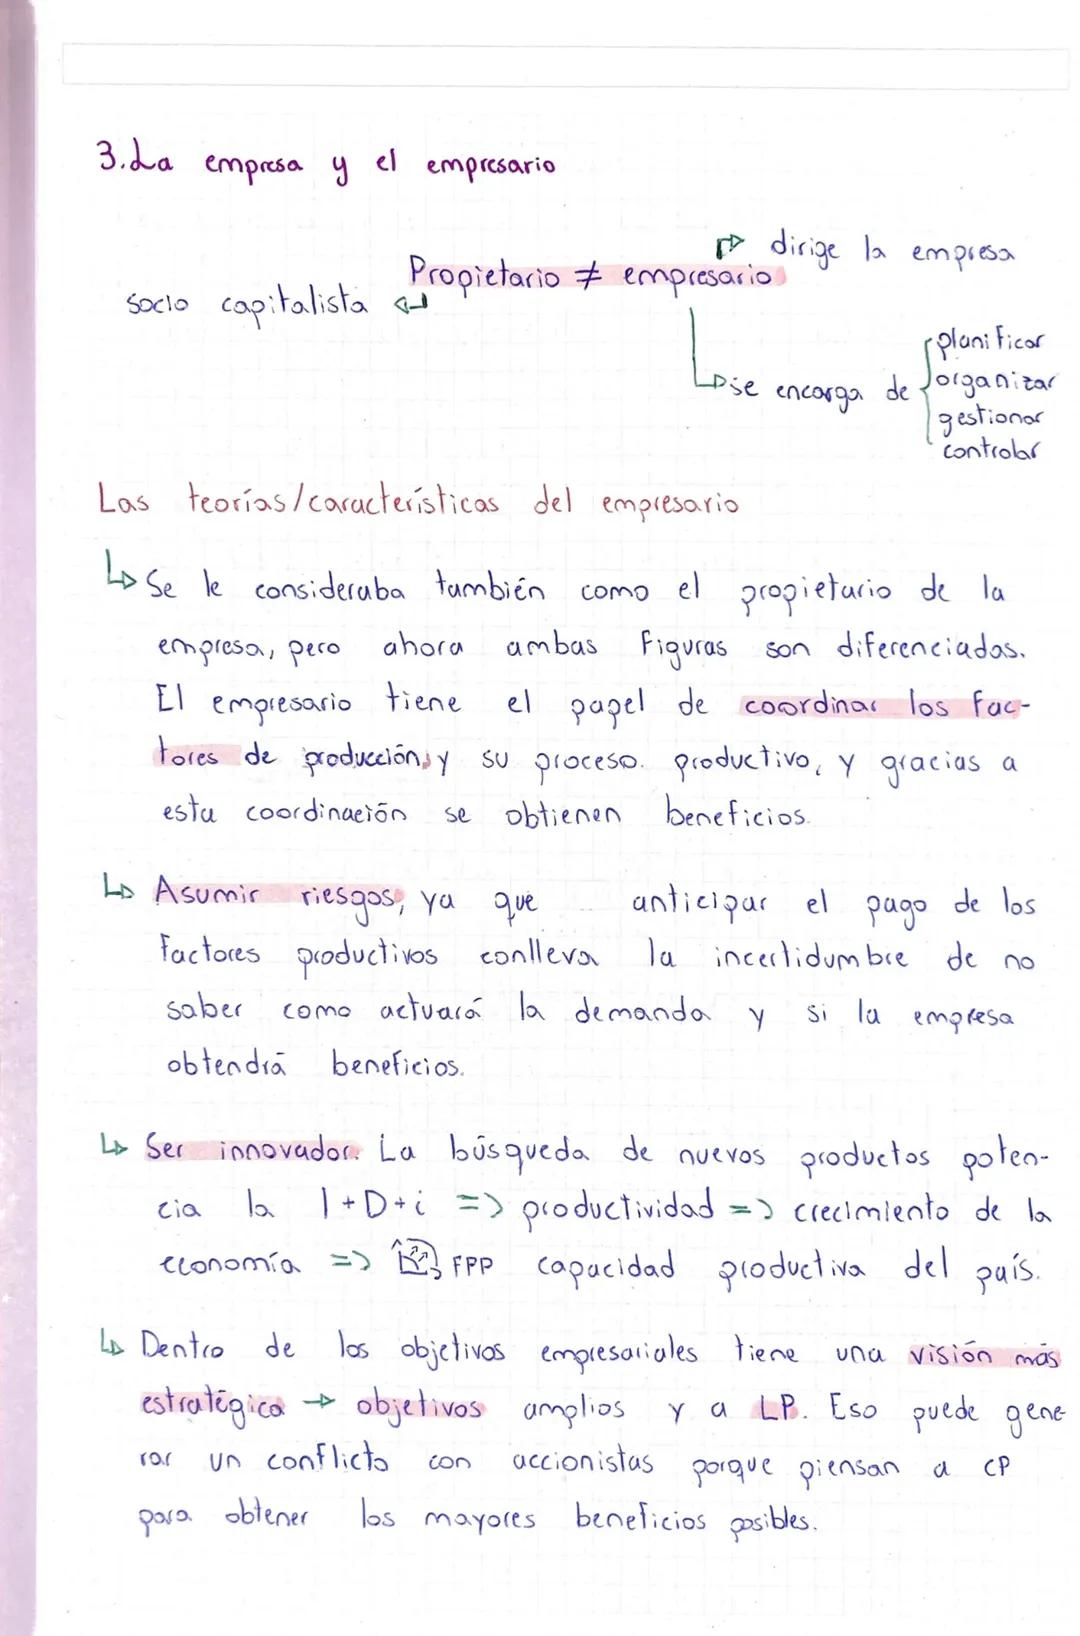 3. La empresa y el empresario
dirige la empresa
Propietario ≠ empresario
socio capitalista
planificar
se encarga de organizar
gestionar
controlar
Las teorías/características del empresario
Se le consideraba también como el propietario de la
empresa, pero ahora ambas figuras son diferenciadas.
El empresario tiene el papel de coordinar los fac-
tores de producción, y su proceso productivo, y gracias a
esta coordinación se obtienen beneficios.
Asumir riesgos, ya que anticipar el pago de los
factores productivos conlleva la incertidumbre de no
saber como actuará la demanda y si la empresa
obtendrá beneficios.
Ser innovador. La búsqueda de nuevos productos poten-
cia la I+D+i => productividad => crecimiento de la
economía => FPP capacidad productiva del país.
Dentro de los objetivos empresariales tiene una visión más
estratégica → objetivos amplios y a LP. Eso puede gene-
rar un conflicto con accionistas porque piensan a CP
para obtener los mayores beneficios posibles.